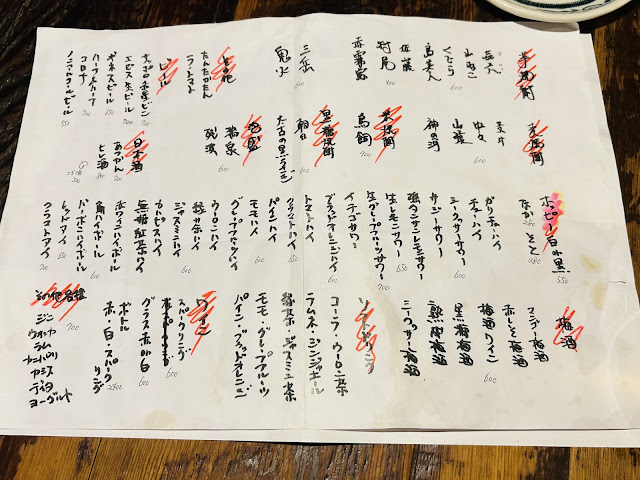 芋焼酎
喜六
山ねこ
くじら
600
島美人
佐藤
400
村尾
赤霧島
三岳
600
鬼火
その他
たんたかたん
600
ラ・トマト
ビール
サッポロ赤星ビン
700
エビス生ビール
600
ギネスビール
700
ハーフ&ハーフ
700
コロナ
600
ノンアルコールビール
550
麦焼酎
中々
600
山猿
神の河
米焼酎
鳥飼
700
黒糖焼酎
朝日
600
太古の黒うさぎ
泡盛
瑞泉
600
残波
日本酒
あつかん
ヒレ酒
800
ホッピー白or黒
550
なか
そと
280
ガリチューハイ
チューハイ
600
ミークヮサーサワー
サジーサワー
650
強タンサンレモンサワー
生レモンサワー
650
生グレープフルーツサワー
700
イチゴサワー
ブラッドオレンジハイ
600
トマトハイ
クラマトハイ
650
パインハイ
モモハイ
600
グレープフルーツハイ
ウーロンハイ
緑茶ハイ
600
ジャスミンハイ
カルピスハイ
無糖紅茶ハイ
ホワイトハイボール
角ハイボール
600
バーボンハイボール
600
レッドアイ
クラマトアイ
700
梅酒
マンゴー梅酒
赤しそ梅酒
梅酒ワイン
600
黒糖梅酒
熟成梅酒
シークヮサー梅酒
ソフトドリンク
コーラ・ウーロン茶
400
ラムネ・ジンジャエール
緑茶・ジャスミン茶
モモ・グレープフルーツ
パイン・ブラッドオレンジ
ワイン
スパークリング
グラス赤or白
600
ボトル
赤・白・スパークリング
その他各種
700
ジン
ウオッカ
ラム
カンパリ
カシス
ヨーグルト